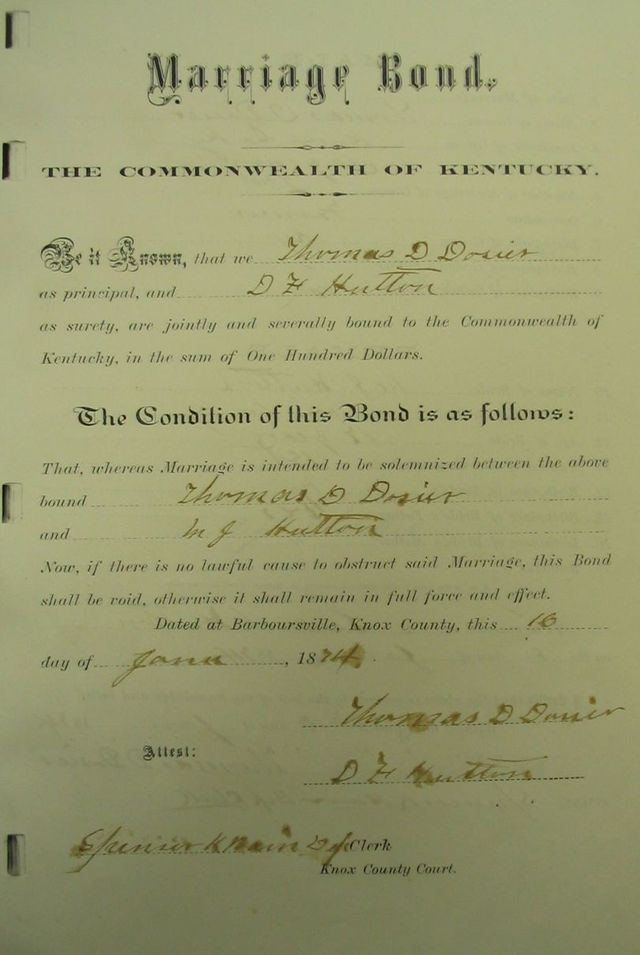 Marriage Bond.
THE COMMONWEALTH OF KENTUCKY.
Be it Known, that we Thomas D Dosier
as principal, and D F Hutton
as surety, are jointly and severally bound to the Commonwealth of
Kentucky, in the sum of One Hundred Dollars.
The Condition of this Bond is as follows:
That, whereas Marriage is intended to be solemnized between the above
bound Thomas D Dosier
and M J Hutton
Now, if there is no lawful cause to obstruct said Marriage, this Bond
shall be void, otherwise it shall remain in full force and effect.
Dated at Barboursville, Knox County, this 16
day of , 1874.
Thomas D Dosier
Attest:
D F Hutton
Clerk
Knox County Court.